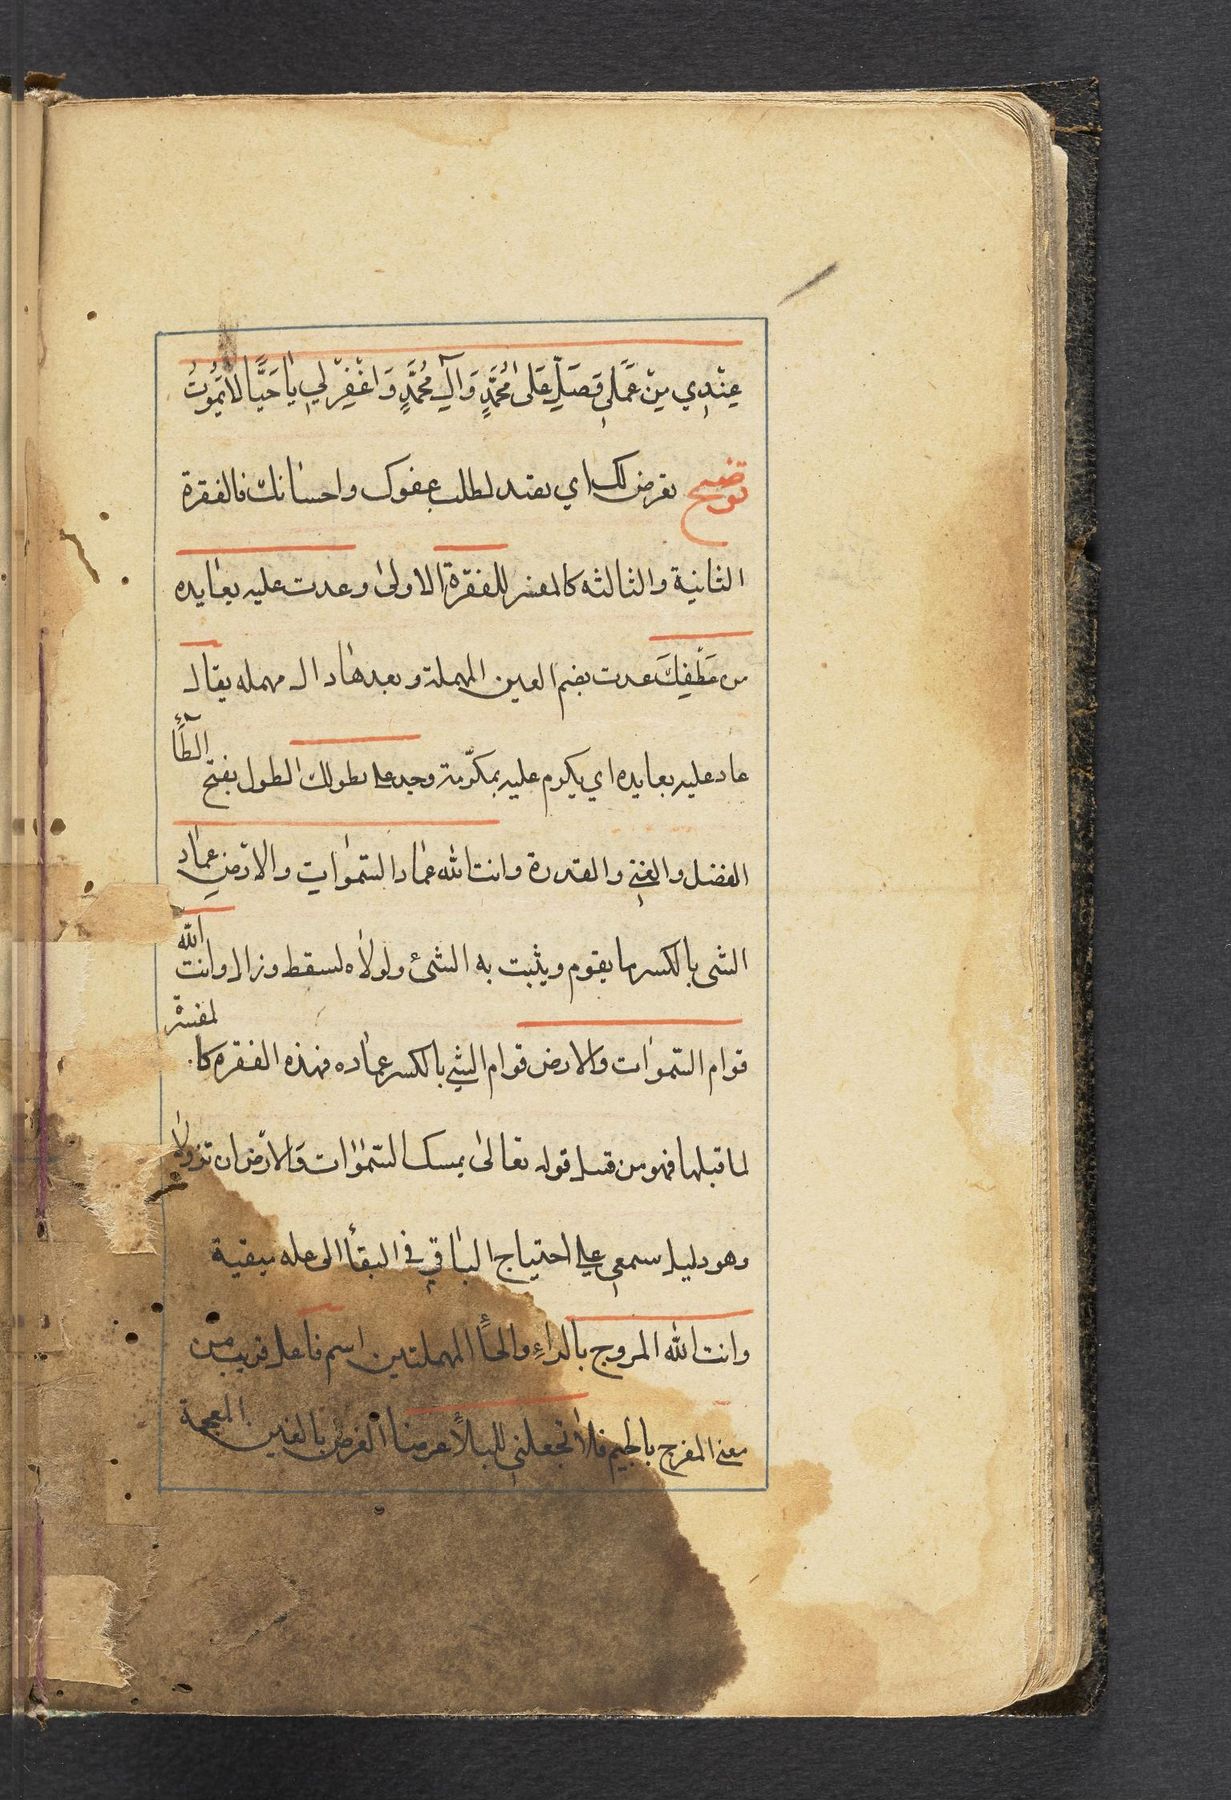 عِنْدِي مِنْ عَمَلِي فَصَلِّ عَلىٰ مُحَمَّدٍ وَآلِ مُحَمَّدٍ وَاغْفِرْ لِي يٰا حَيًّا لاٰ يَمُوتُ
توضيح تعرض لك اي تصد لطلب عفوك واحسانك فالفقرة
الثانية والثالثه كالمفسر للفقرة الاولىٰ وعدت عليه بعٰايده
من عَطْفِكَ عدت بضم العين المهملة وبعدهٰا دال مهمله يقال
عاد عليه بعايده اي يكرم عليه بمكرّمة وجد علي بطولك الطول بفتح الطّآء
الفضل والغني والقدرة وانت الله عمٰاد السّمٰوات والارض عمٰاد
الشي بالكسر ما يقوم ويثبت به الشئ ولولاه لسقط وزال وانت الله
قوام السّمٰوات والارض قوام الشي بالكسر عمٰاده فهذه الفقره كالمفسّرة
لما قبلها فهو من قبيل قوله تعالىٰ يمسك السّمٰوات والارْض ان تزولاٰ
وهو دليل سمعي علي احتياج البٰاقي في البقأ الى عله مبقية
وانت الله المروح بالرآءِ والحأ المهملتين اسم فاعل قريب من
معني المفرج بالجيم فلاٰ تجعلني للبلأ غرضا الغرض بالغين المعجمة